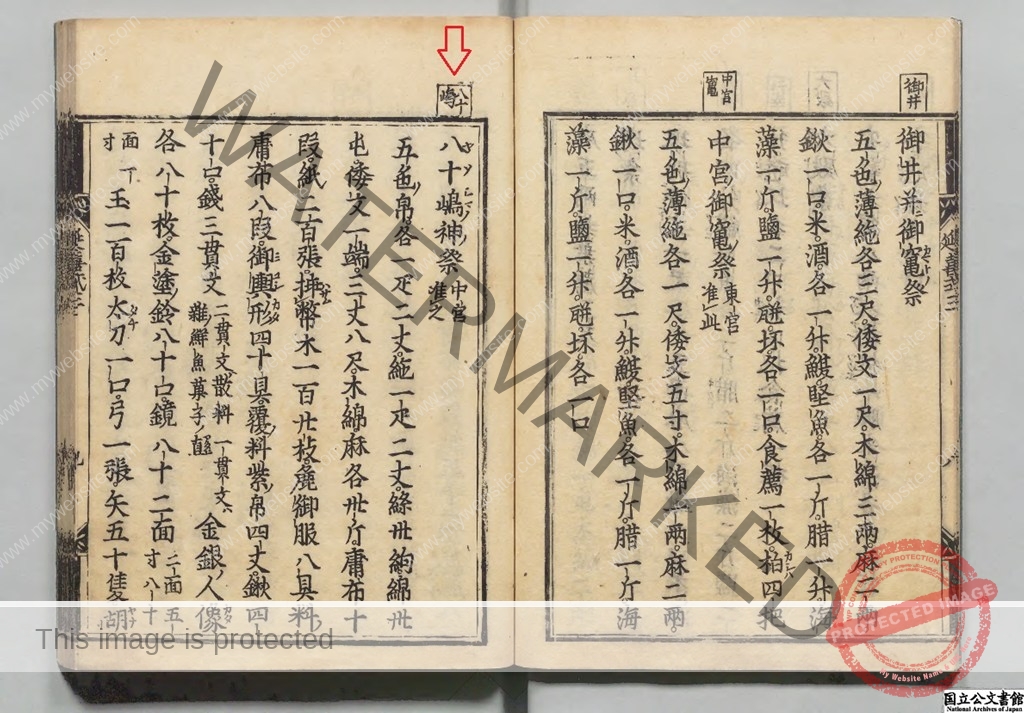 御井
御井并御竃祭
五色薄絁各三尺倭文一尺木綿三兩麻二兩
鍬一口米酒各一升鰒堅魚各一斤腊一升海
藻一斤鹽一升瓼坏各一口食薦一枚柏四把
中宮竃
中宮御竃祭 東宮准此
五色薄絁各一尺倭文五寸木綿 兩麻二兩
鍬一口米酒各一升鰒堅魚各一斤腊一斤海
藻一斤鹽一升瓼坏各一口
八十嶋
八十嶋神祭 中宮准之
五色帛各一疋二丈絁一疋二丈絲卅絇綿卅
屯倭文一端三丈八尺木綿麻各卅斤庸布十
段紙二百張挿幣木一百廿枝麁御服八具料
庸布八段御輿形四十具覆料紫帛四丈鍬四
十口錢三貫文 二貫文散料一貫文雜鮮魚菓子直 金銀人像
各八十枚金塗鈴八十口鏡八十二面 二面五寸八十
面一寸 玉一百枚太刀一口弓一張矢五十隻胡
延喜式三
延喜式三
八
九
WATERMARKED
This image is protected
PROTECTED IMAGE
PROTECTED
My Website Name
www.mywebsite.com
国立公文書館
National Archives of Japan